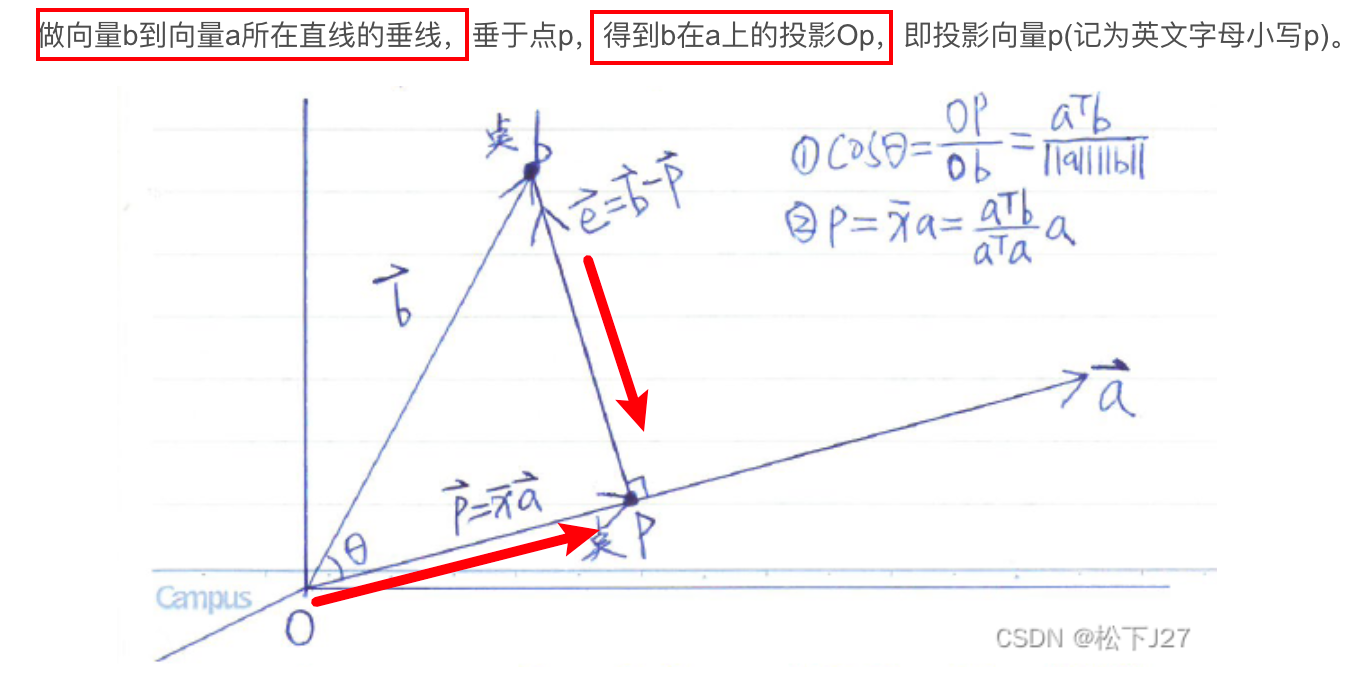 做向量b到向量a所在直线的垂线，垂于点p，得到b在a上的投影Op，即投影向量p(记为英文字母小写p)。
点b
① cosθ = OP/Ob = aᵀb/||a||||b||
e⃗=b⃗-p⃗
② P = x̄a = aᵀb/aᵀa a
b⃗
a⃗
p⃗=x̄a⃗
点P
θ
Campus
O
CSDN @松下J27